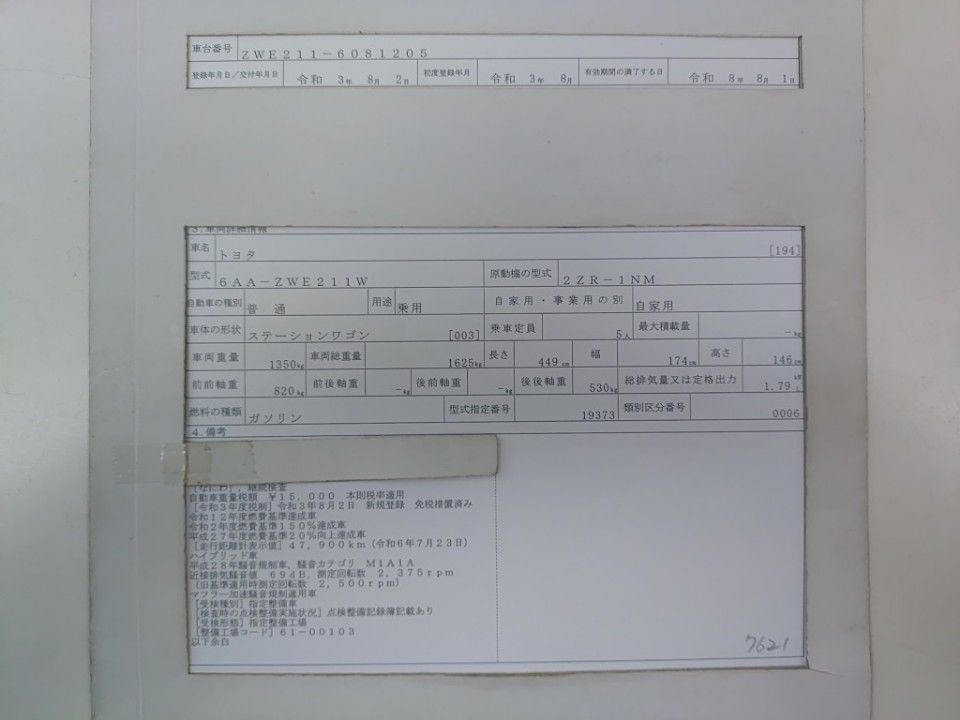 車台番号 ZWE211-6081205
登録年月日/交付年月日 令和 3年 8月 2日 初度登録年月 令和 3年 8月 有効期間の満了する日 令和 8年 8月 1日
3.車両詳細情報
車名 トヨタ [194]
型式 6AA-ZWE211W 原動機の型式 2ZR-1NM
自動車の種別 普通 用途 乗用 自家用・事業用の別 自家用
車体の形状 ステーションワゴン [003] 乗車定員 5人 最大積載量 -kg
車両重量 1350kg 車両総重量 1625kg 長さ 449cm 幅 174cm 高さ 146cm
前前軸重 820kg 前後軸重 -kg 後前軸重 -kg 後後軸重 530kg 総排気量又は定格出力 1.79 kW L
燃料の種類 ガソリン 型式指定番号 19373 類別区分番号 0006
4.備考
[なにわ],継続検査
自動車重量税額 ¥15,000 本則税率適用
[令和3年度税制]令和3年8月2日 新規登録 免税措置済み
令和12年度燃費基準達成車
令和2年度燃費基準150%達成車
平成27年度燃費基準20%向上達成車
[走行距離計表示値]47,900km(令和6年7月23日)
ハイブリッド車
平成28年騒音規制車,騒音カテゴリ M1A1A
近接排気騒音値 69dB,測定回転数 2,375rpm
(旧基準適用時測定回転数 2,500rpm)
マフラー加速騒音規制適用車
[受検種別]指定整備車
[検査時の点検整備実施状況]点検整備記録簿記載あり
[受検形態]指定整備工場
[整備工場コード]61-00103
以下余白
7621